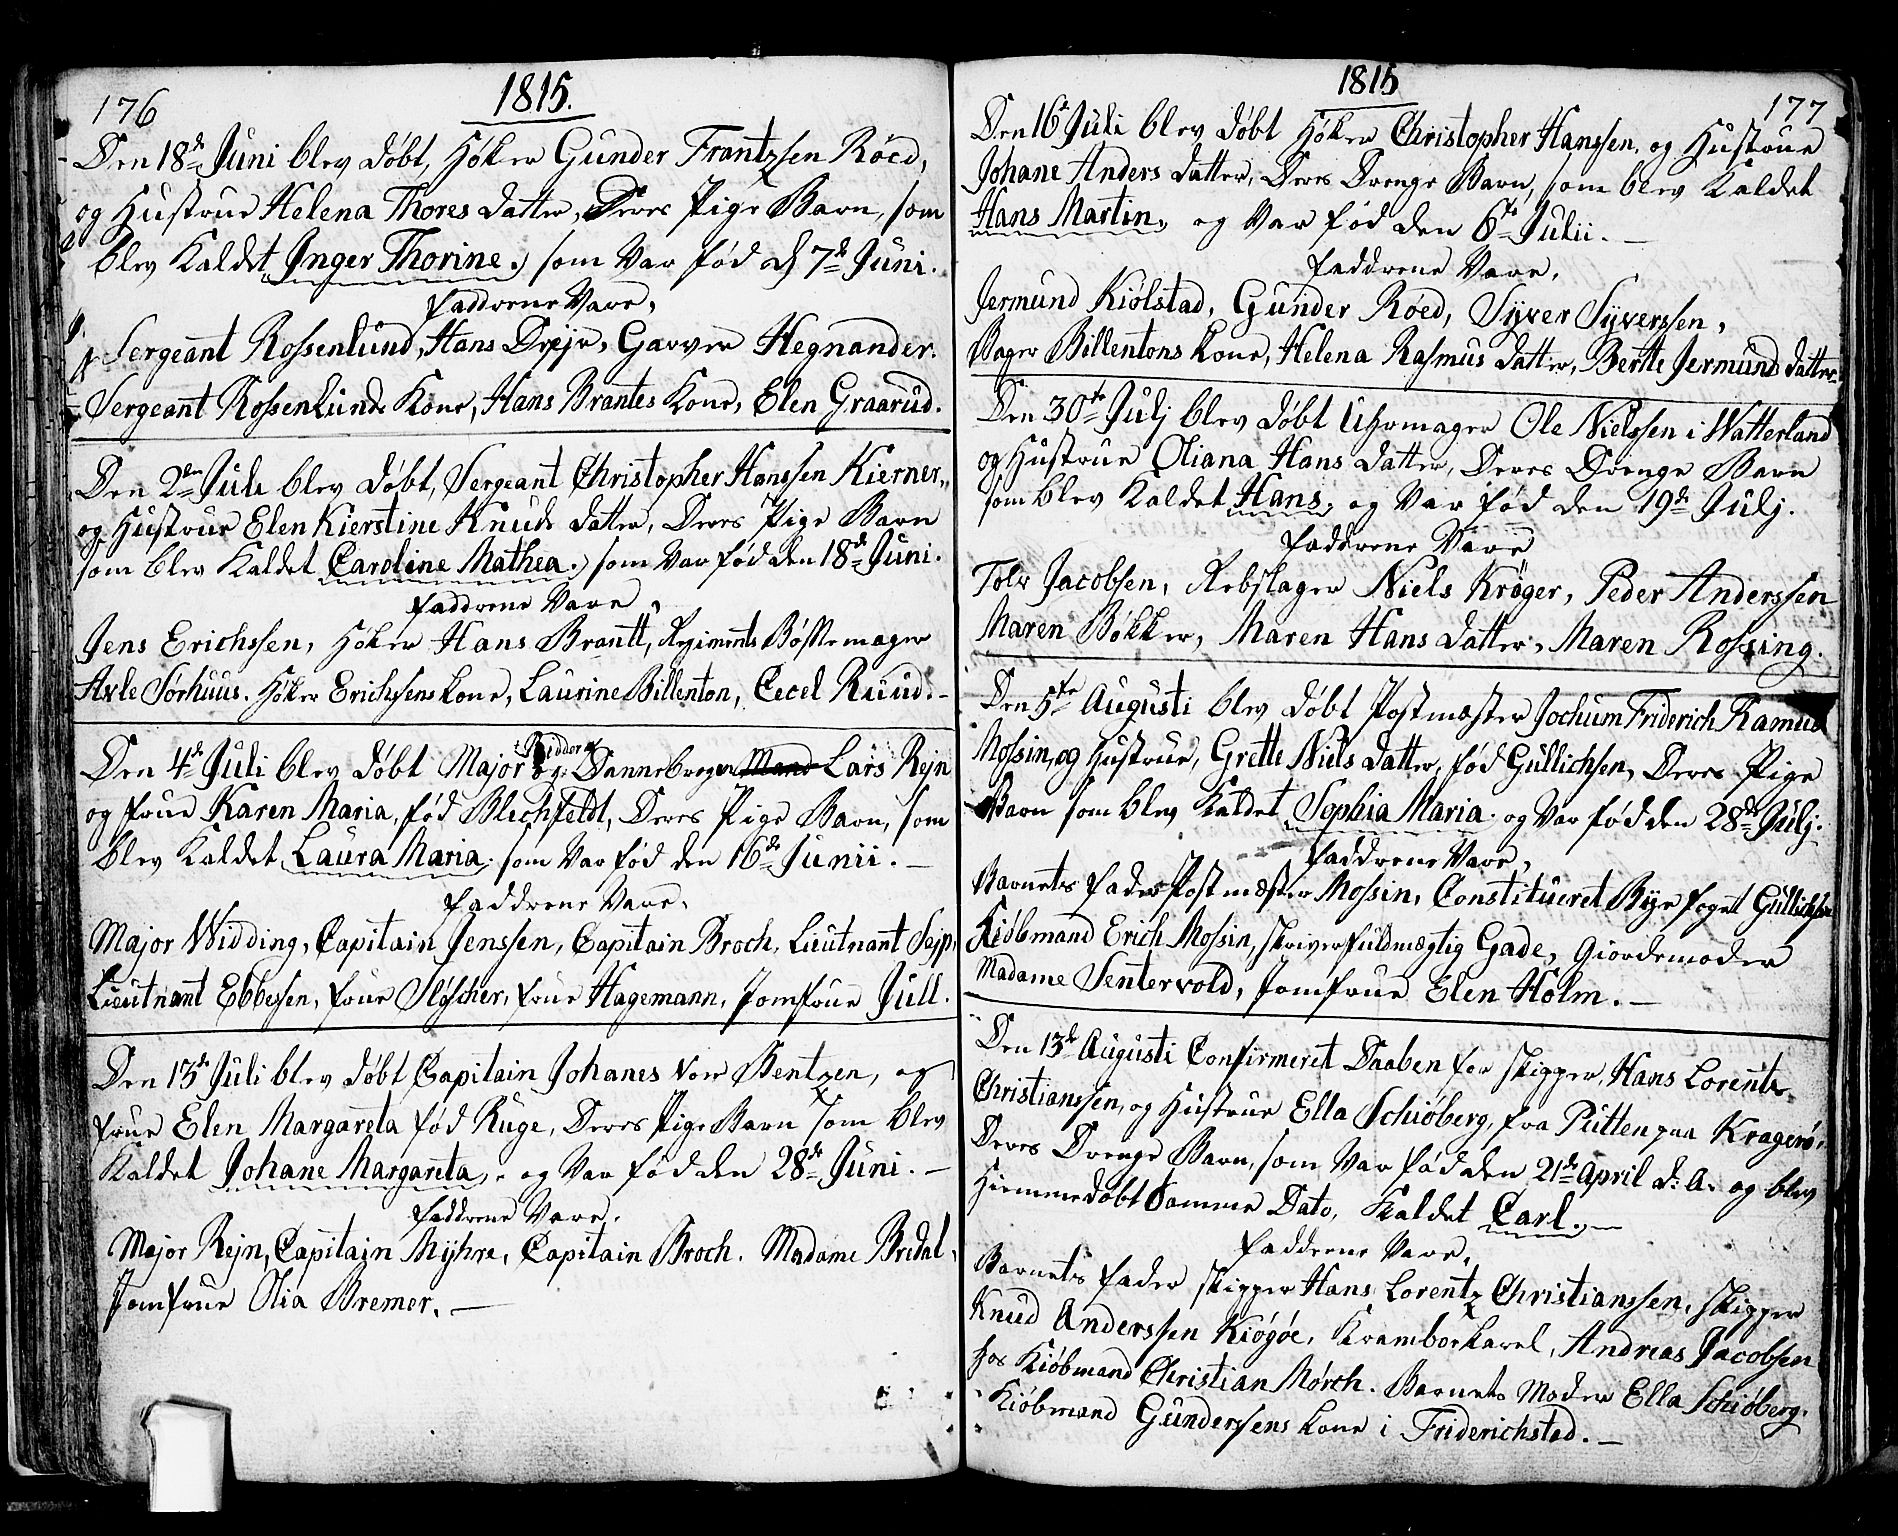 176
1815.
Den 18de Juni blev døbt, Høker Gunder Frantzsen Röed,
og Hustrue Helena Thores datter, Deres Pige Barn, som
blev Kaldet Inger Thorine, som Var fød d 7de Juni.
Faddrene Vare,
Sergeant Rossenlund, Hans Dreje, Garver Hegnander.
Sergeant Rossenlunds Kone, Hans Brantes Kone, Elen Graarud.
Den 2den Juli blev døbt, Sergeant Christopher Hanssen Kierner,
og Hustrue Elen Kierstine Knuds datter, Deres Pige Barn
som blev Kaldet Caroline Mathea, som Var fød den 18de Juni.
Faddrene Vare,
Jens Erichssen, Høker Hans Brantt, Regiments Bøssemager
Axle Sørhuus. Høker Erichsens Kone, Laurine Billenton, Cecel Ruud.
Den 4de Juli blev døbt Major og Ridder af Danneborgen Mand Lars Rejn
og Frue Karen Maria, fød Blichfeldt, Deres Pige Barn, som
blev Kaldet Laura Maria. som Var fød den 16de Junii.
Faddrene Vare,
Major Widding, Capitain Jenssen, Capitain Broch, Lieutnant Sejp,
Lieutnant Ebbessen, Frue Sløscher, Frue Hagemann, Jomfrue Jull.
Den 13de Juli blev døbt Capitain Johanes Von Bentzen, og
Frue Elen Margareta fød Ruge, Deres Pige Barn som blev
Kaldet Johane Margareta, og Var fød den 28de Juni.
Faddrene Vare,
Major Rejn, Capitain Myhre, Capitain Broch. Madame Bredal,
Jomfrue Olia Bremer.
1815
177
Den 16de Juli blev døbt Høker Christopher Hanssen, og Hustrue
Johane Anders datter, Deres Drenge Barn, som blev Kaldet
Hans Martin, og Var fød den 6te Julii.
Faddrene Vare,
Jermund Kiølstad, Gunder Røed, Syver Syverssen,
Bager Billentons Kone, Helena Rasmus datter, Berthe Jermund datter
Den 30te Julj blev døbt Uhrmager Ole Nielssen i Watterland
og Hustrue Oliana Hans datter, Deres Drenge Barn
som blev Kaldet Hans, og Var fød den 19de Julj.
Faddrene Vare
Tolv Jacobsen, Rebslager Niels Krøger, Peder Anderssen
Maren Bøkker, Maren Hans datter, Maren Rossing.
Den 5te Augusti blev døbt Postmæster Jochum Friderich Ramus
Mossin, og Hustrue, Grette Niels datter, fød Gullichsen, Deres Pige
Barn som blev Kaldet Sophia Maria. og Var fød den 28de Julj.
Faddrene Vare,
Barnets Fader Postmæster Mossin, Constitueret Bye foget Gullichsen
Kiøbmand Erich Mossin, Skriverfuldmægtig Gade, Giordemoder
Madame Sentervold, Jomfrue Elen Holm.
Den 13de Augusti Confirmeret Daaben for Skipper, Hans Lorentz
Christianssen, og Hustrue Ella Schiøberg, fra Putten paa Kragerø.
Deres Drenge Barn, som Var fød den 21de April d: A. og blev
Hiemmedøbt samme Dato, Kaldet Carl.
Faddrene Vare,
Barnets Fader Skipper Hans Lorentz Christianssen, Skipper
Knud Anderssen Kiøgøe, Kramborkarel, Andreas Jacobsen
hos Kiøbmand Christian Mørch. Barnets Moder Ella Schiøberg.
Kiøbmand Gunderssens Kone i Friderichstad.